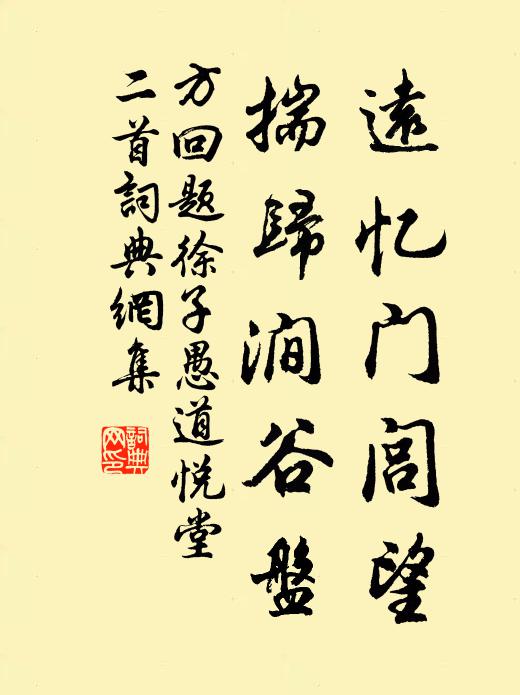 遠忆门闾望
揣歸澗谷盤
方回题徐子愚道悦堂
二首詞典網集
詞典网印